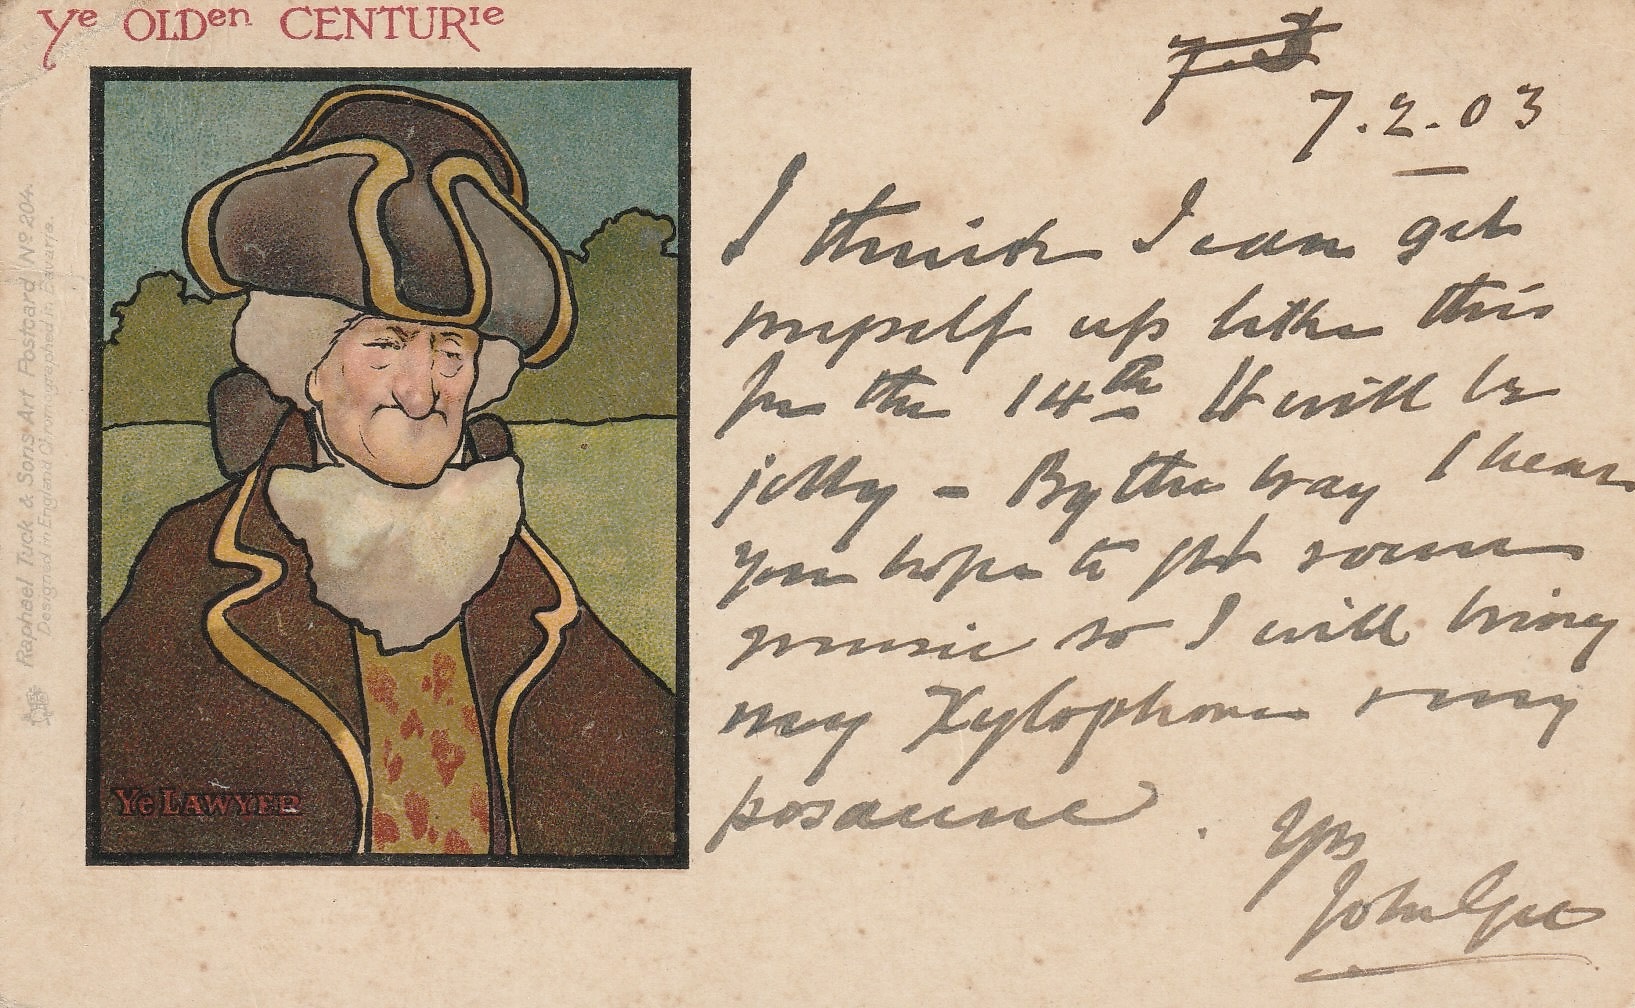 Ye OLDen CENTURIe
Raphael Tuck & Sons Art Postcard No 204.
Designed in England Chromographed in Bavaria.
Ye LAWYER
7.2.03
I think I can get
myself up like this
for the 14th It will be
jolly - By the way I hear
you hope to get some
music so I will bring
my Xylophone & my
posaune.
Yrs
John